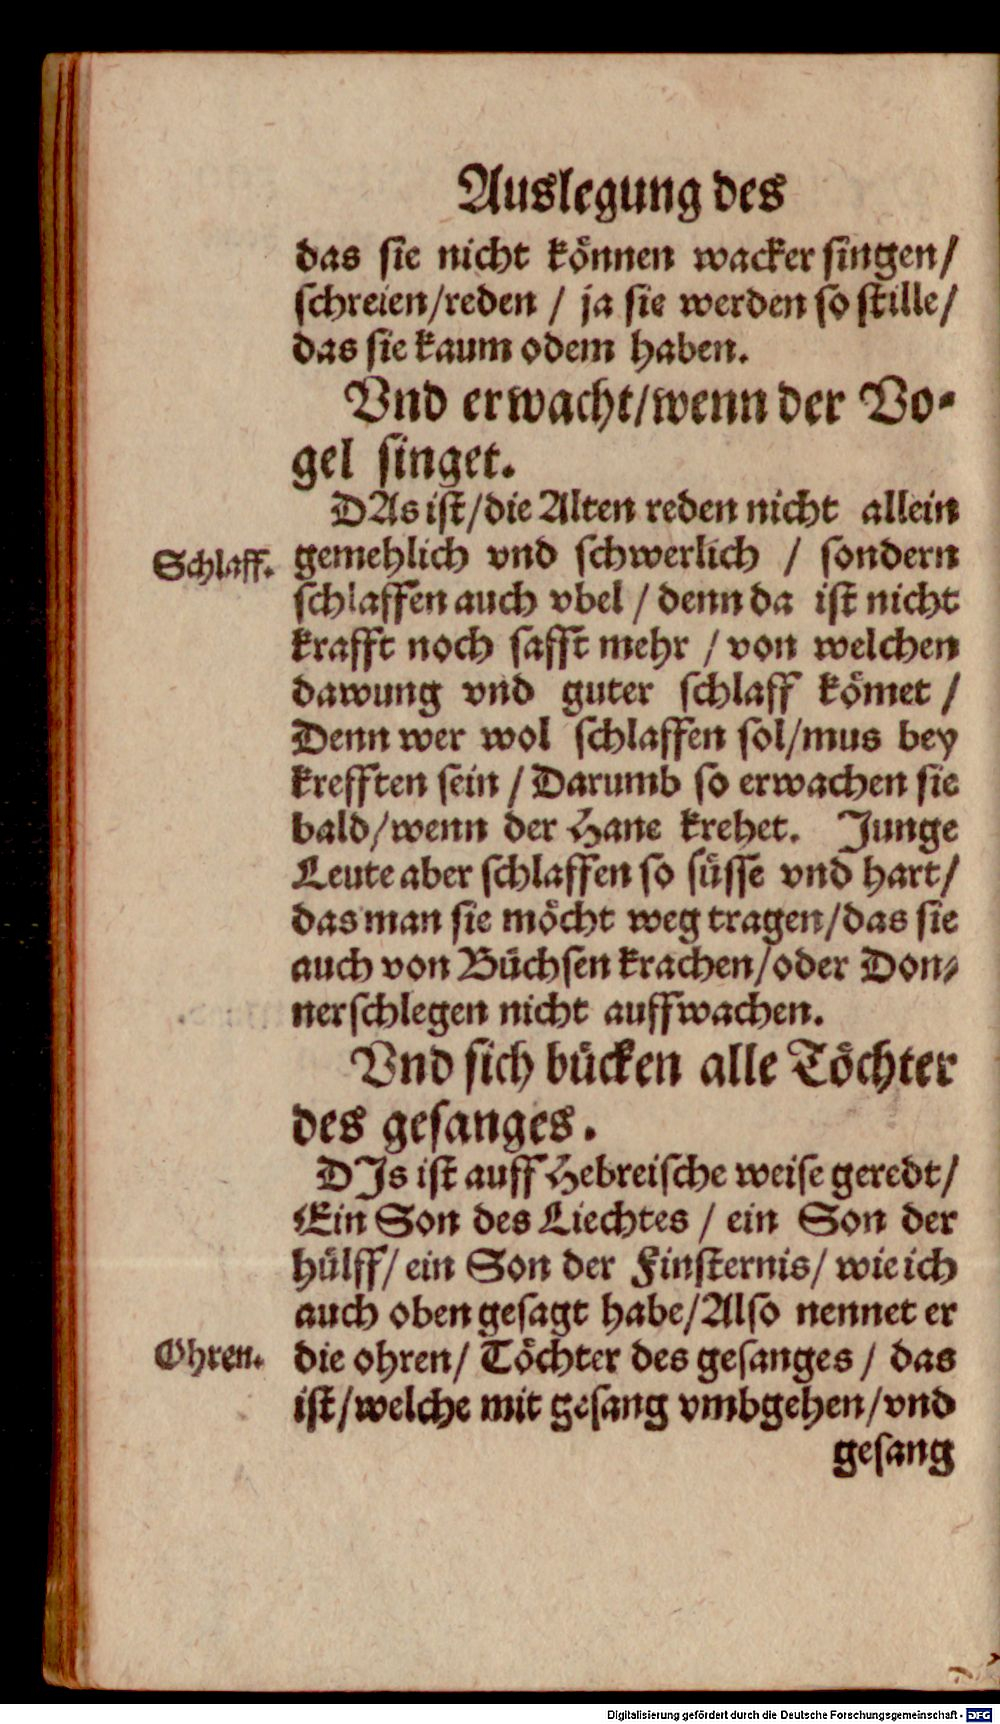 Auslegung des
das sie nicht können wacker singen/
schreien/reden / ja sie werden so stille/
das sie kaum odem haben.
Vnd erwacht/wenn der Vo-
gel singet.
DAs ist/die Alten reden nicht allein
Schlaff.
gemehlich vnd schwerlich / sondern
schlaffen auch vbel / denn da ist nicht
krafft noch safft mehr / von welchen
dawung vnd guter schlaff kömet /
Denn wer wol schlaffen sol/mus bey
krefften sein / Darumb so erwachen sie
bald/wenn der Hane krehet. Junge
Leute aber schlaffen so süsse vnd hart/
das man sie möcht weg tragen/das sie
auch von Büchsen krachen/oder Don-
nerschlegen nicht auffwachen.
Vnd sich bücken alle Töchter
des gesanges.
DIs ist auff Hebreische weise geredt/
Ein Son des Liechtes / ein Son der
hülff/ ein Son der Finsternis/ wie ich
auch oben gesagt habe/Also nennet er
Ohren.
die ohren/ Töchter des gesanges / das
ist/welche mit gesang vmbgehen/vnd
gesang
Digitalisierung gefördert durch die Deutsche Forschungsgemeinschaft - DFG